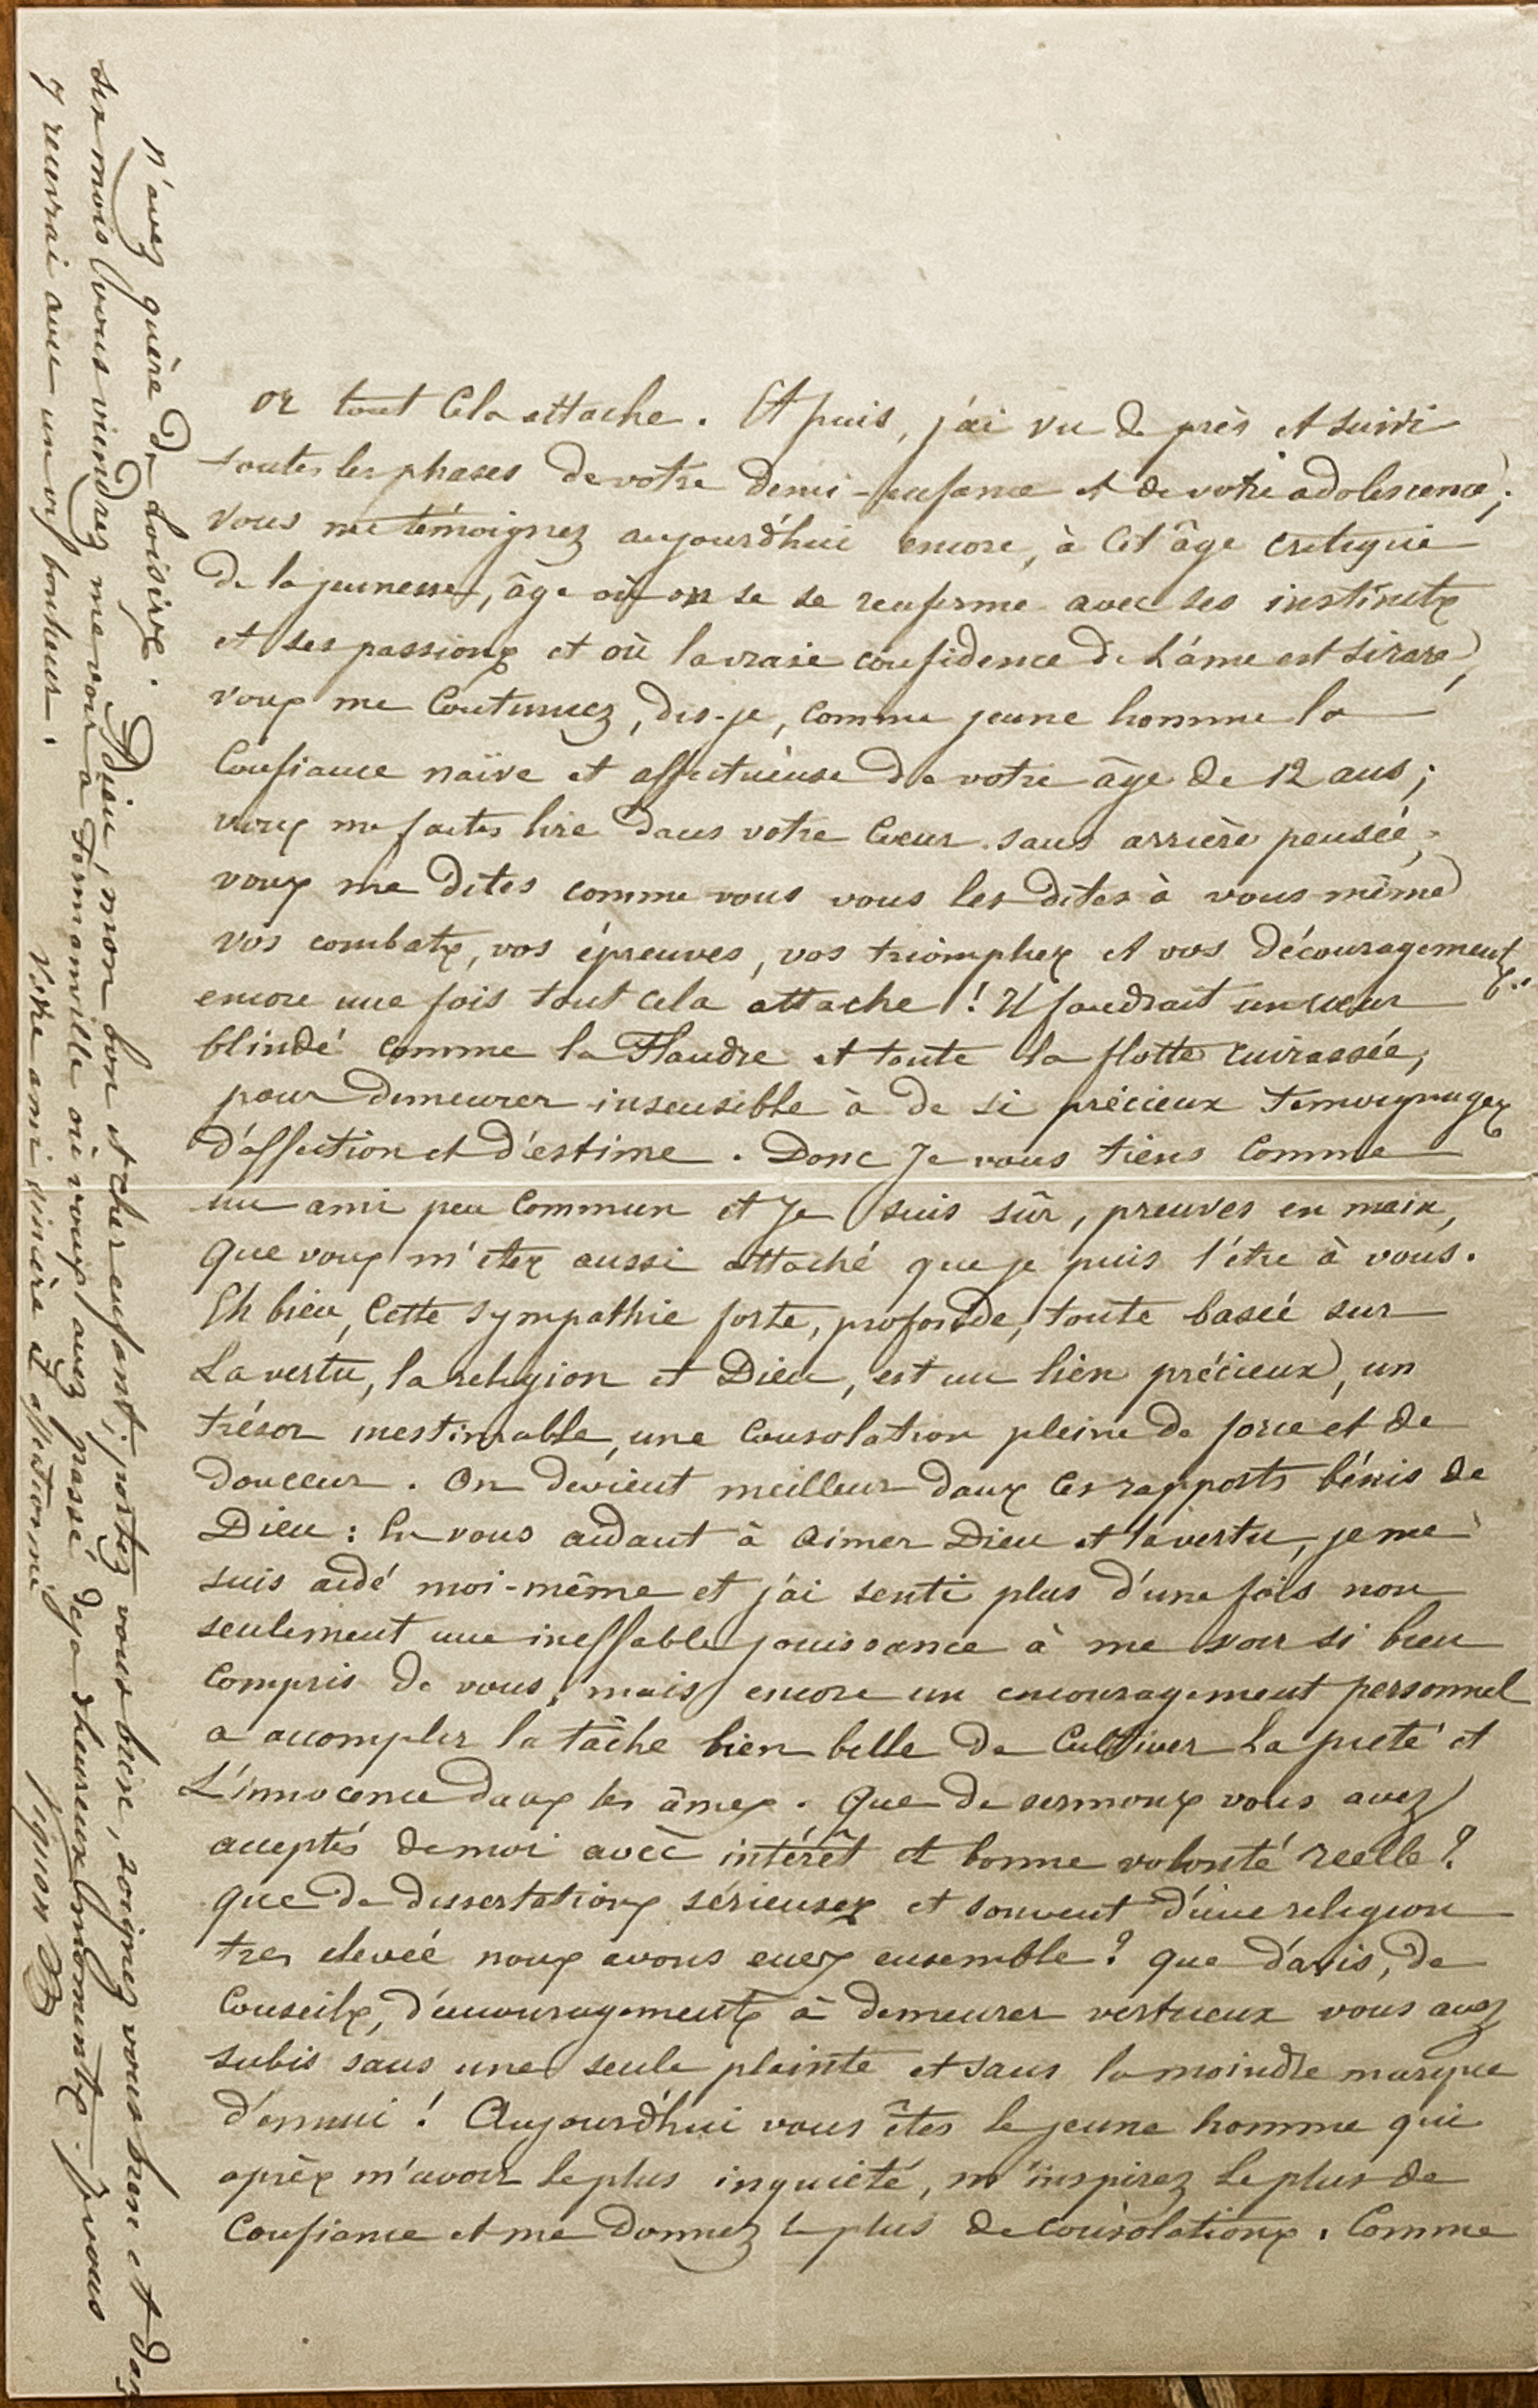 or tout Cela attache. Et puis, j'ai vu de près et suivi
toutes les phases de votre demi-enfance et de votre adolescence;
Vous me témoignez aujourd'hui encore, à Cet âge critique
de la jeunesse, âge où on se se renferme avec ses instincts
et ses passions et où la vraie confidence de L'âme est si rare,
vous me Continuez, dis-je, comme jeune homme la
Confiance naïve et affectueuse de votre âge de 12 ans;
vous me faites lire dans votre Coeur sans arrière pensée,
vous me dites comme vous vous les dites à vous même
vos combats, vos épreuves, vos triomphes et vos découragements
encore une fois tout cela attache! Il faudrait un coeur
blindé comme la Flandre et toute la flotte cuirassée,
pour demeurer insensible à de si précieux temoignages
d'affection et d'estime. Donc Je vous tiens Comme
un ami peu Commun et Je suis sûr, preuves en main,
Que vous m'êtes aussi attaché que je puis l'être à vous.
Eh bien, Cette sympathie forte, profonde, toute basée sur
La vertu, la religion et Dieu, est un lien précieux, un
trésor inestimable, une Consolation pleine de force et de
douceur. On devient meilleur dans Ces rapports bénis de
Dieu: En vous aidant à aimer Dieu et la vertu, je me
suis aidé moi-même et j'ai senti plus d'une fois non
seulement une ineffable jouissance à me voir si bien
Compris de vous, mais encore un encouragement personnel
a accomplir la tâche bien belle de Cultiver La pieté et
L'innocence dans les âmes. Que de sermons vous avez
acceptés de moi avec intérêt et bonne volonté réelle?
que de dissertations sérieuses et souvent d'une religion
tres elevée nous avons eues ensemble? que d'avis, de
Conseils, d'encouragements à demeurer vertueux vous avez
subis sans une seule plainte et sans la moindre marque
d'ennui! Aujourd'hui vous êtes le jeune homme qui
après m'avoir le plus inquiété, m'inspirez Le plus de
Confiance et me donnez le plus de consolations. Comme
n'avez guère de Loisirs. Adieu, mon bon et cher enfant, portez vous bien, soignez vous bien et dans
six mois vous viendrez me voir a Tommanville où vous avez passé deja d'heureux moments. Je vous
y recevrai avec un vif bonheur.
Votre ami sincère et affectionné